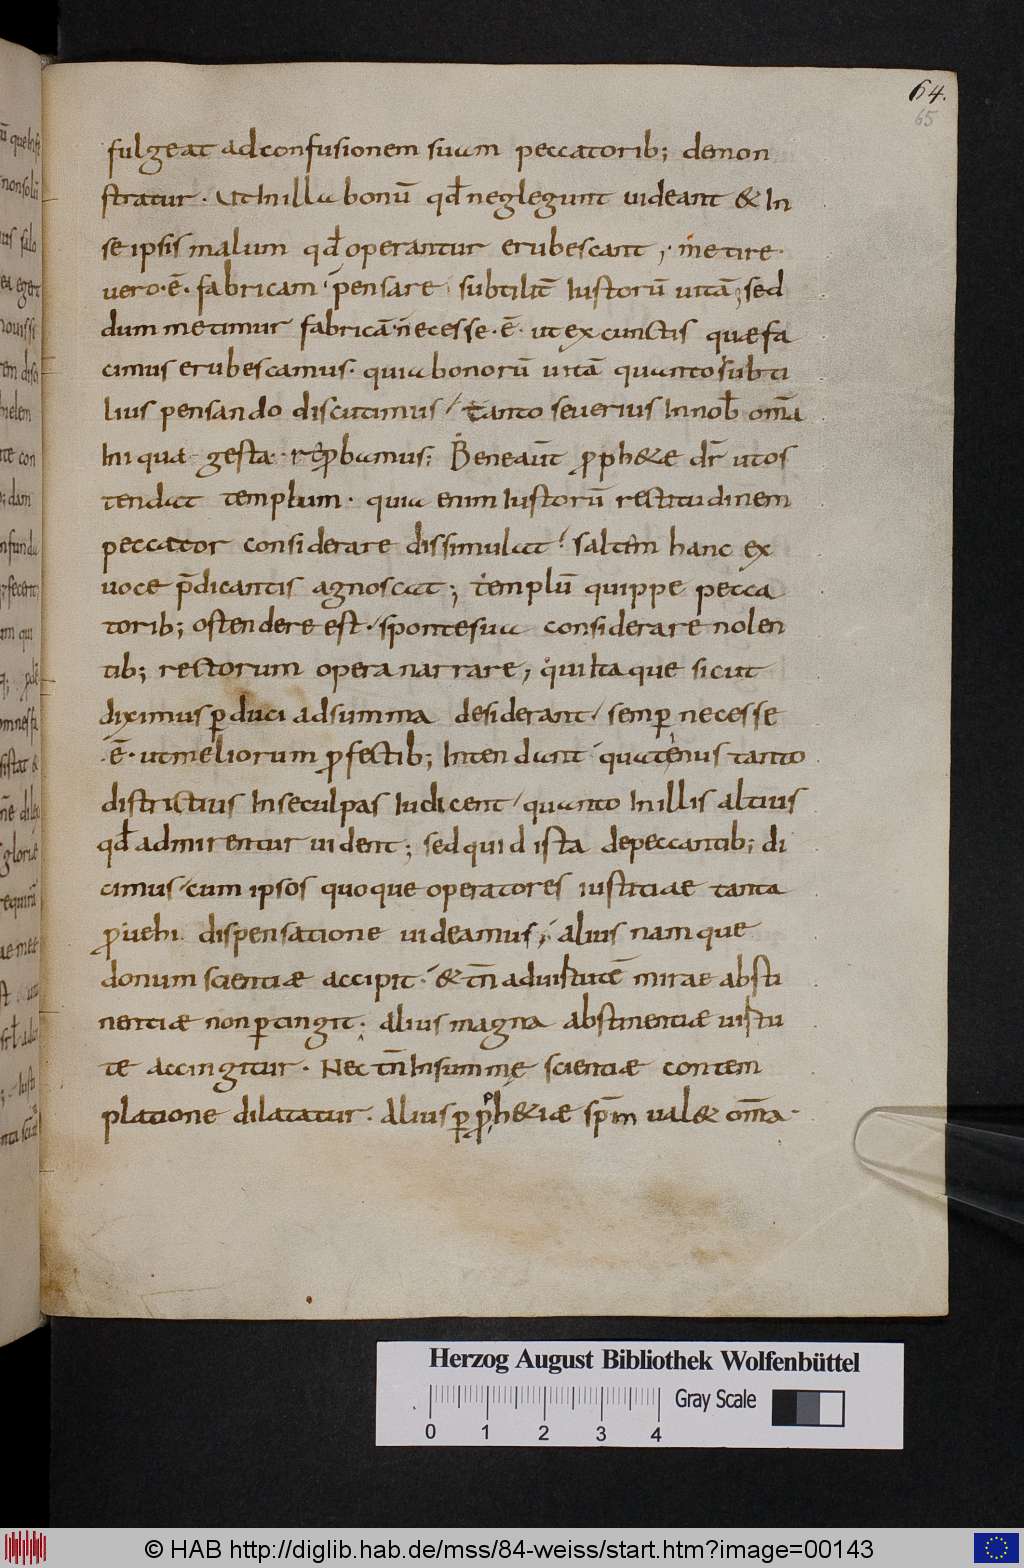 64.
65
fulgeat ad confusionem suam peccatorib; demon
stratur. Ut in illa bonū qđ neglegunt uideant & in
se ipsis malum qđ operantur erubescant; metire
uero.ē. fabricam pensare subtilit̄ iustorū uitā; sed
dum metimur fabricā necesse.ē. ut ex cunctis quae fa
cimus erubescamus. quia bonorū uitā quanto subti
lius pensando discutimus tanto seuerius in nob̄ om̄a
iniqua gesta reꝓbamus; Bene aūt ꝓph&ae dr̄ ut os
tendat templum. quia enim iustorū rectitudinem
peccator considerare dissimulat saltem hanc ex
uoce p̄dicantis agnoscat; templū quippe pecca
torib; ostendere est. sponte sua considerare nolen
tib; rectorum opera narrare, qui itaque sicut
diximus ꝑduci ad summa desiderant semꝑ necesse
.ē. ut meliorum ꝓfectib; intendant quatenus tanto
districtius in se culpas iudicent quanto in illis altius
qđ admirentur uident; sed quid ista de peccantib; di
cimus cum ipsos quoque operatores iustitiae tanta
ꝓuehi dispensatione uideamus; alius namque
donum scientiae accipit. & tn̄ ad uirtutē mirae absti
nentiae non ꝑtingit. alius magna abstinentiae uirtu
te accingitur. Nec tn̄ in summę scientiae contem
platione dilatatur. Alius ꝑ ꝓph&iae sp̄m ual& om̄a.
Herzog August Bibliothek Wolfenbüttel
Gray Scale
0 1 2 3 4
© HAB http://diglib.hab.de/mss/84-weiss/start.htm?image=00143